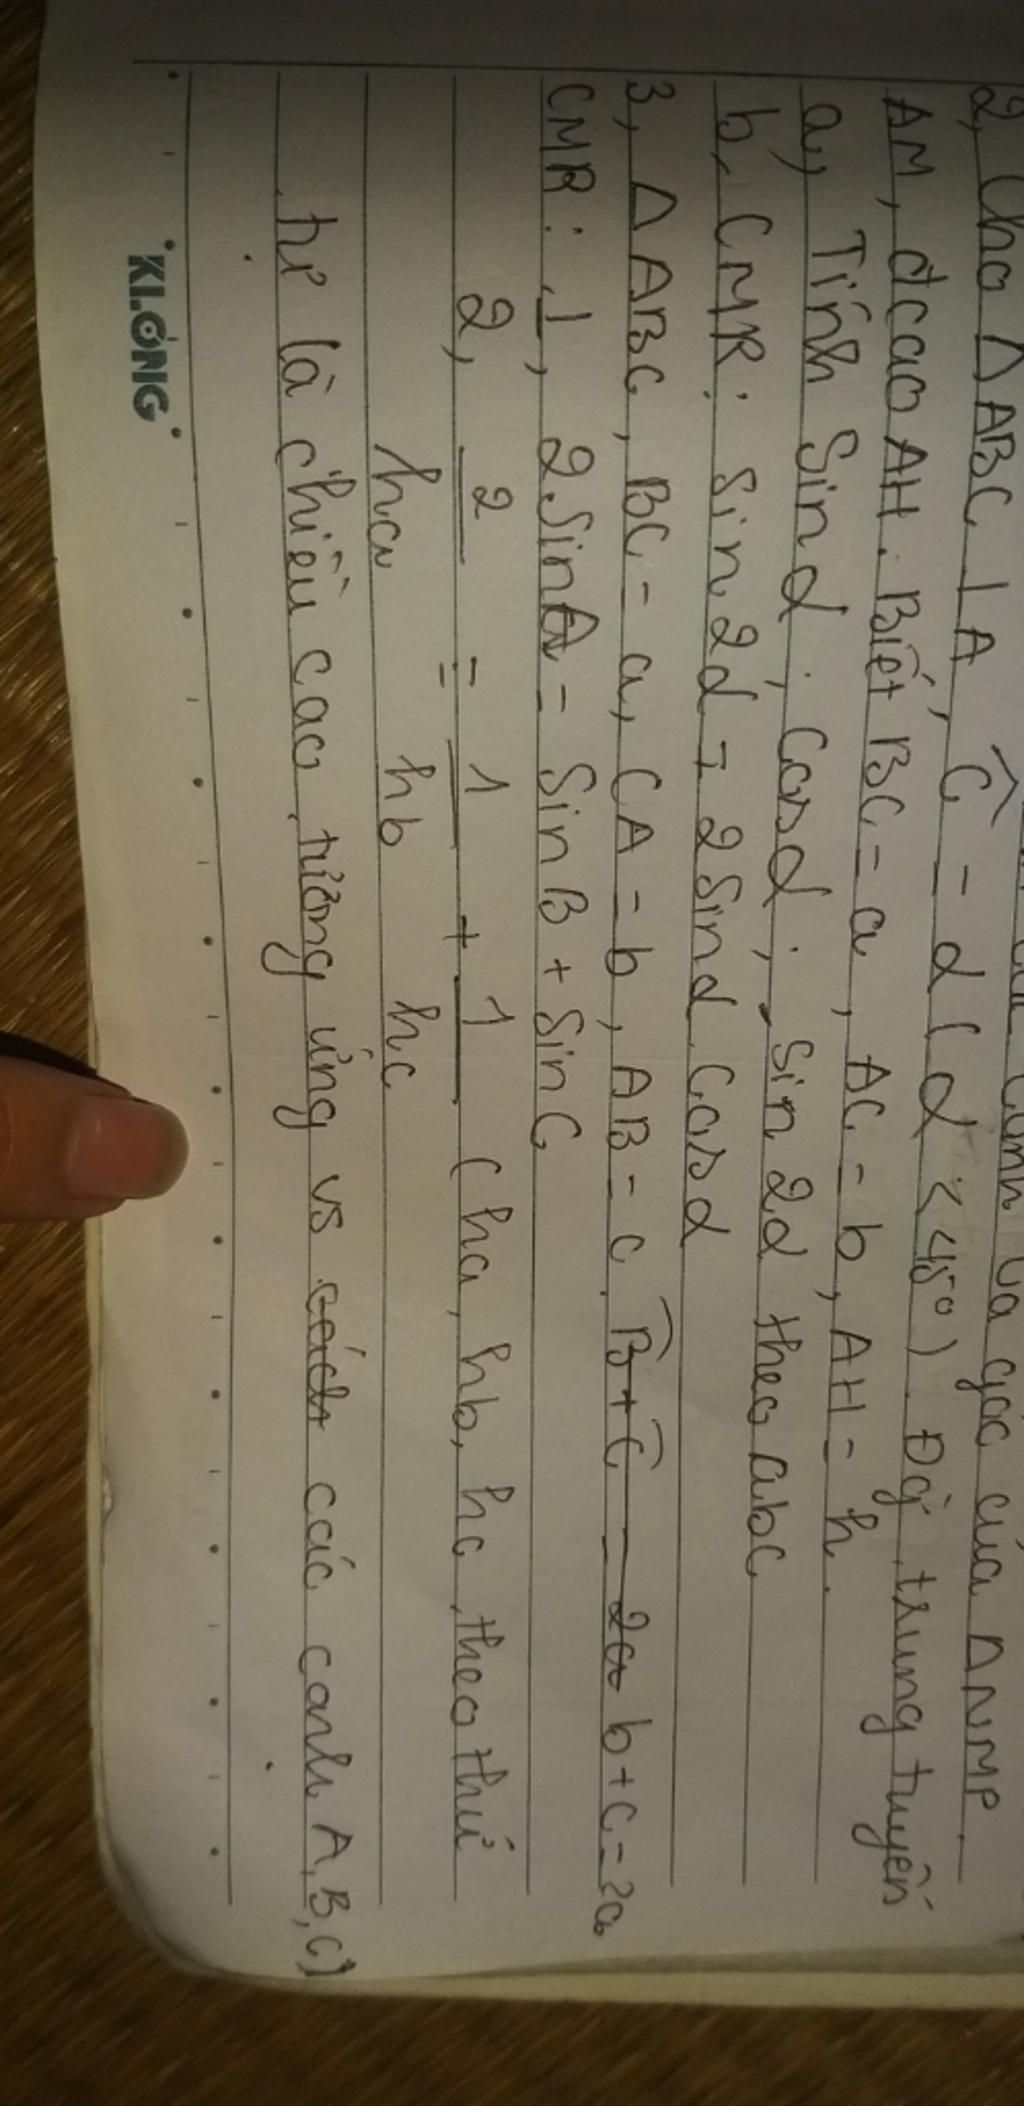 góc của ΔNMP.
2, Cho ΔABC ⊥ A, Ĉ = α (α < 45°). Đg trung tuyến
AM, đcao AH. Biết BC = a, AC = b, AH = h.
a, Tính Sinα; Cosα; Sin2α theo abc
b, CMR: Sin2α = 2Sinα Cosα
3, ΔABC, BC = a, CA = b, AB = c. B̂ + Ĉ = 2a b + c = 2a
CMR: 1, 2SinA = SinB + SinC
2, 2/ha = 1/hb + 1/hc (ha, hb, hc theo thứ
tự là chiều cao tương ứng vs cách các cạnh A, B, C)
KLONG